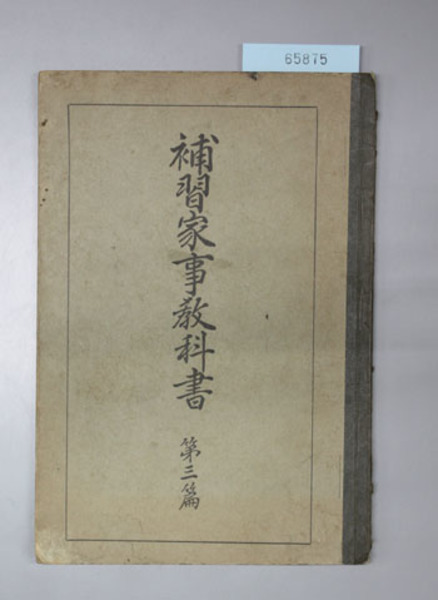 65875
補習家事教科書
第三篇